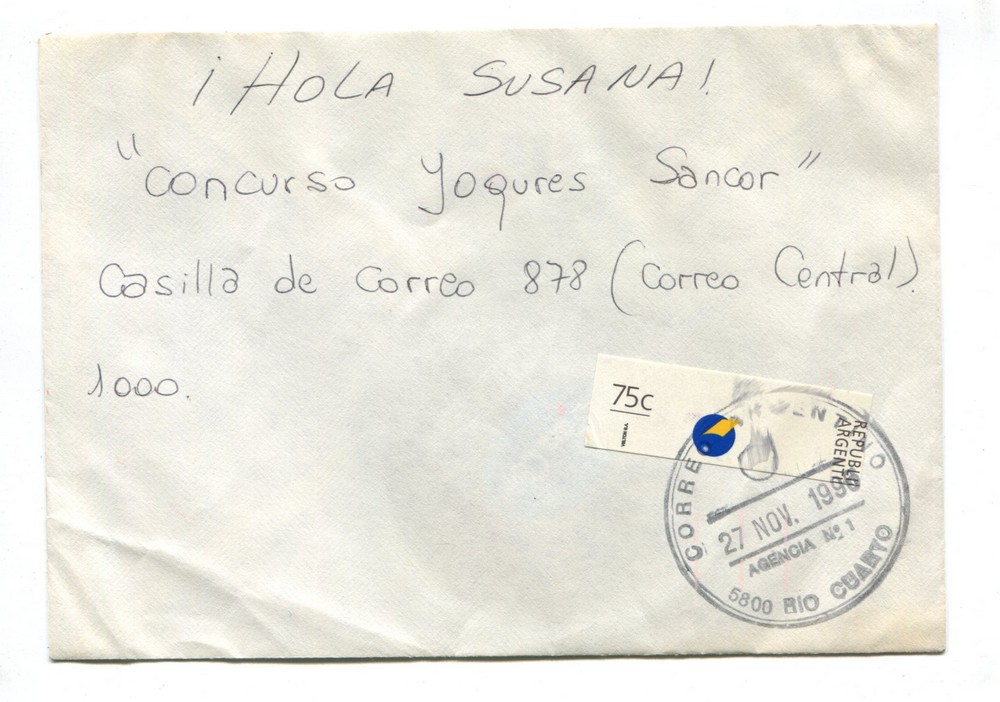 ¡HOLA SUSANA!
"Concurso Yoqures Sancor"
Casilla de Correo 878 (Correo Central).
1000.
75c
REPUBLICA
ARGENTI
CORREO ARGENTINO
27 NOV. 199
AGENCIA Nº 1
5800 RIO CUARTO